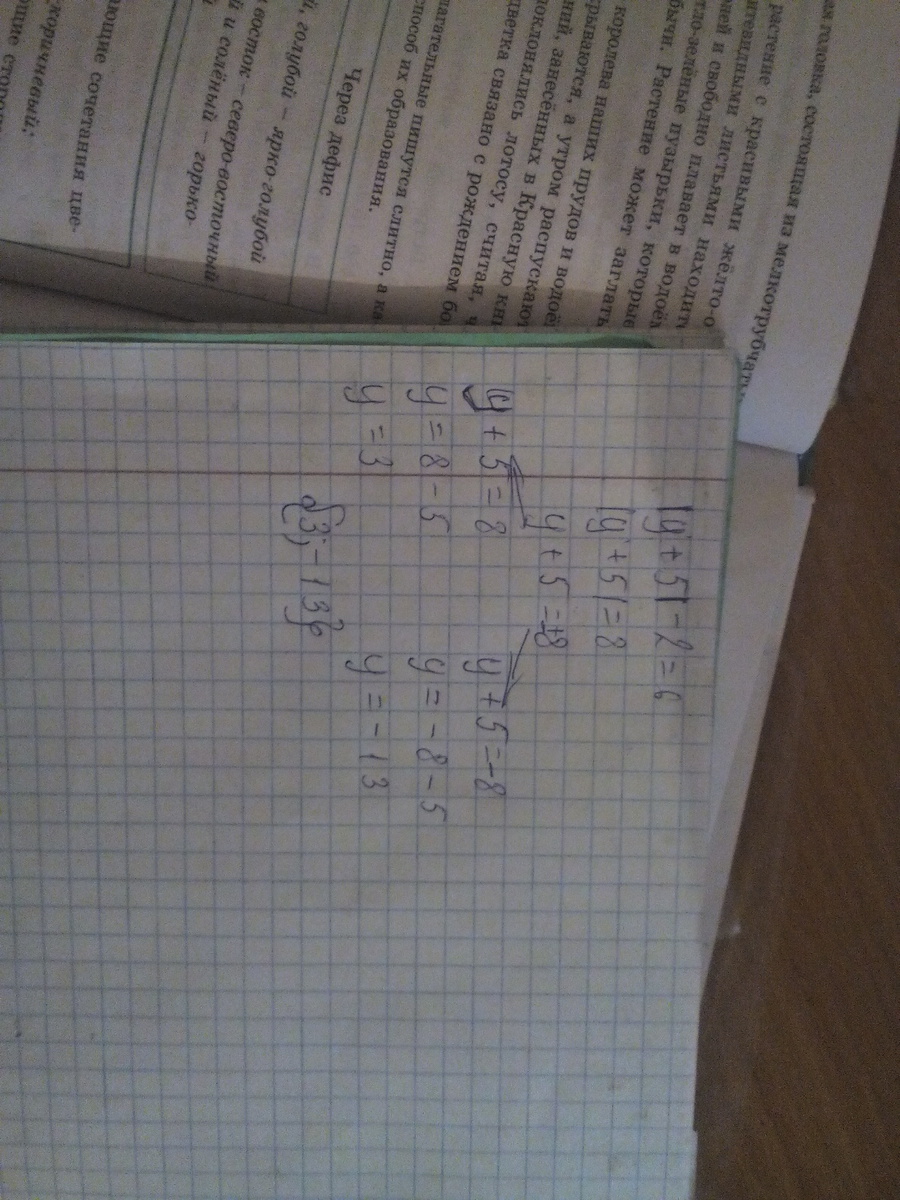 ая головка, состоящая из мелкотрубчать
растение с красивыми жёлто-о
итевидными листьями находит
ней и свободно плавает в водоём
тло-зелёные пузырьки, которые
бычи. Растение может заглать
королева наших прудов и водоём
рываются, а утром распускают
ний, занесённых в Красную кни
оклонялись лотосу, считая, ч
ветка связано с рождением бо
лагательные пишутся слитно, а ка
способ их образования.
Через дефис
й, голубой – ярко-голубой
восток – северо-восточный
й и солёный – горько-
ающие сочетания цве-
коричневый;
|y + 5| - 2 = 6
|y + 5| = 8
y + 5 = ±8
y + 5 = 8 y + 5 = -8
y = 8 - 5 y = -8 - 5
y = 3 y = -13
{3; -13}